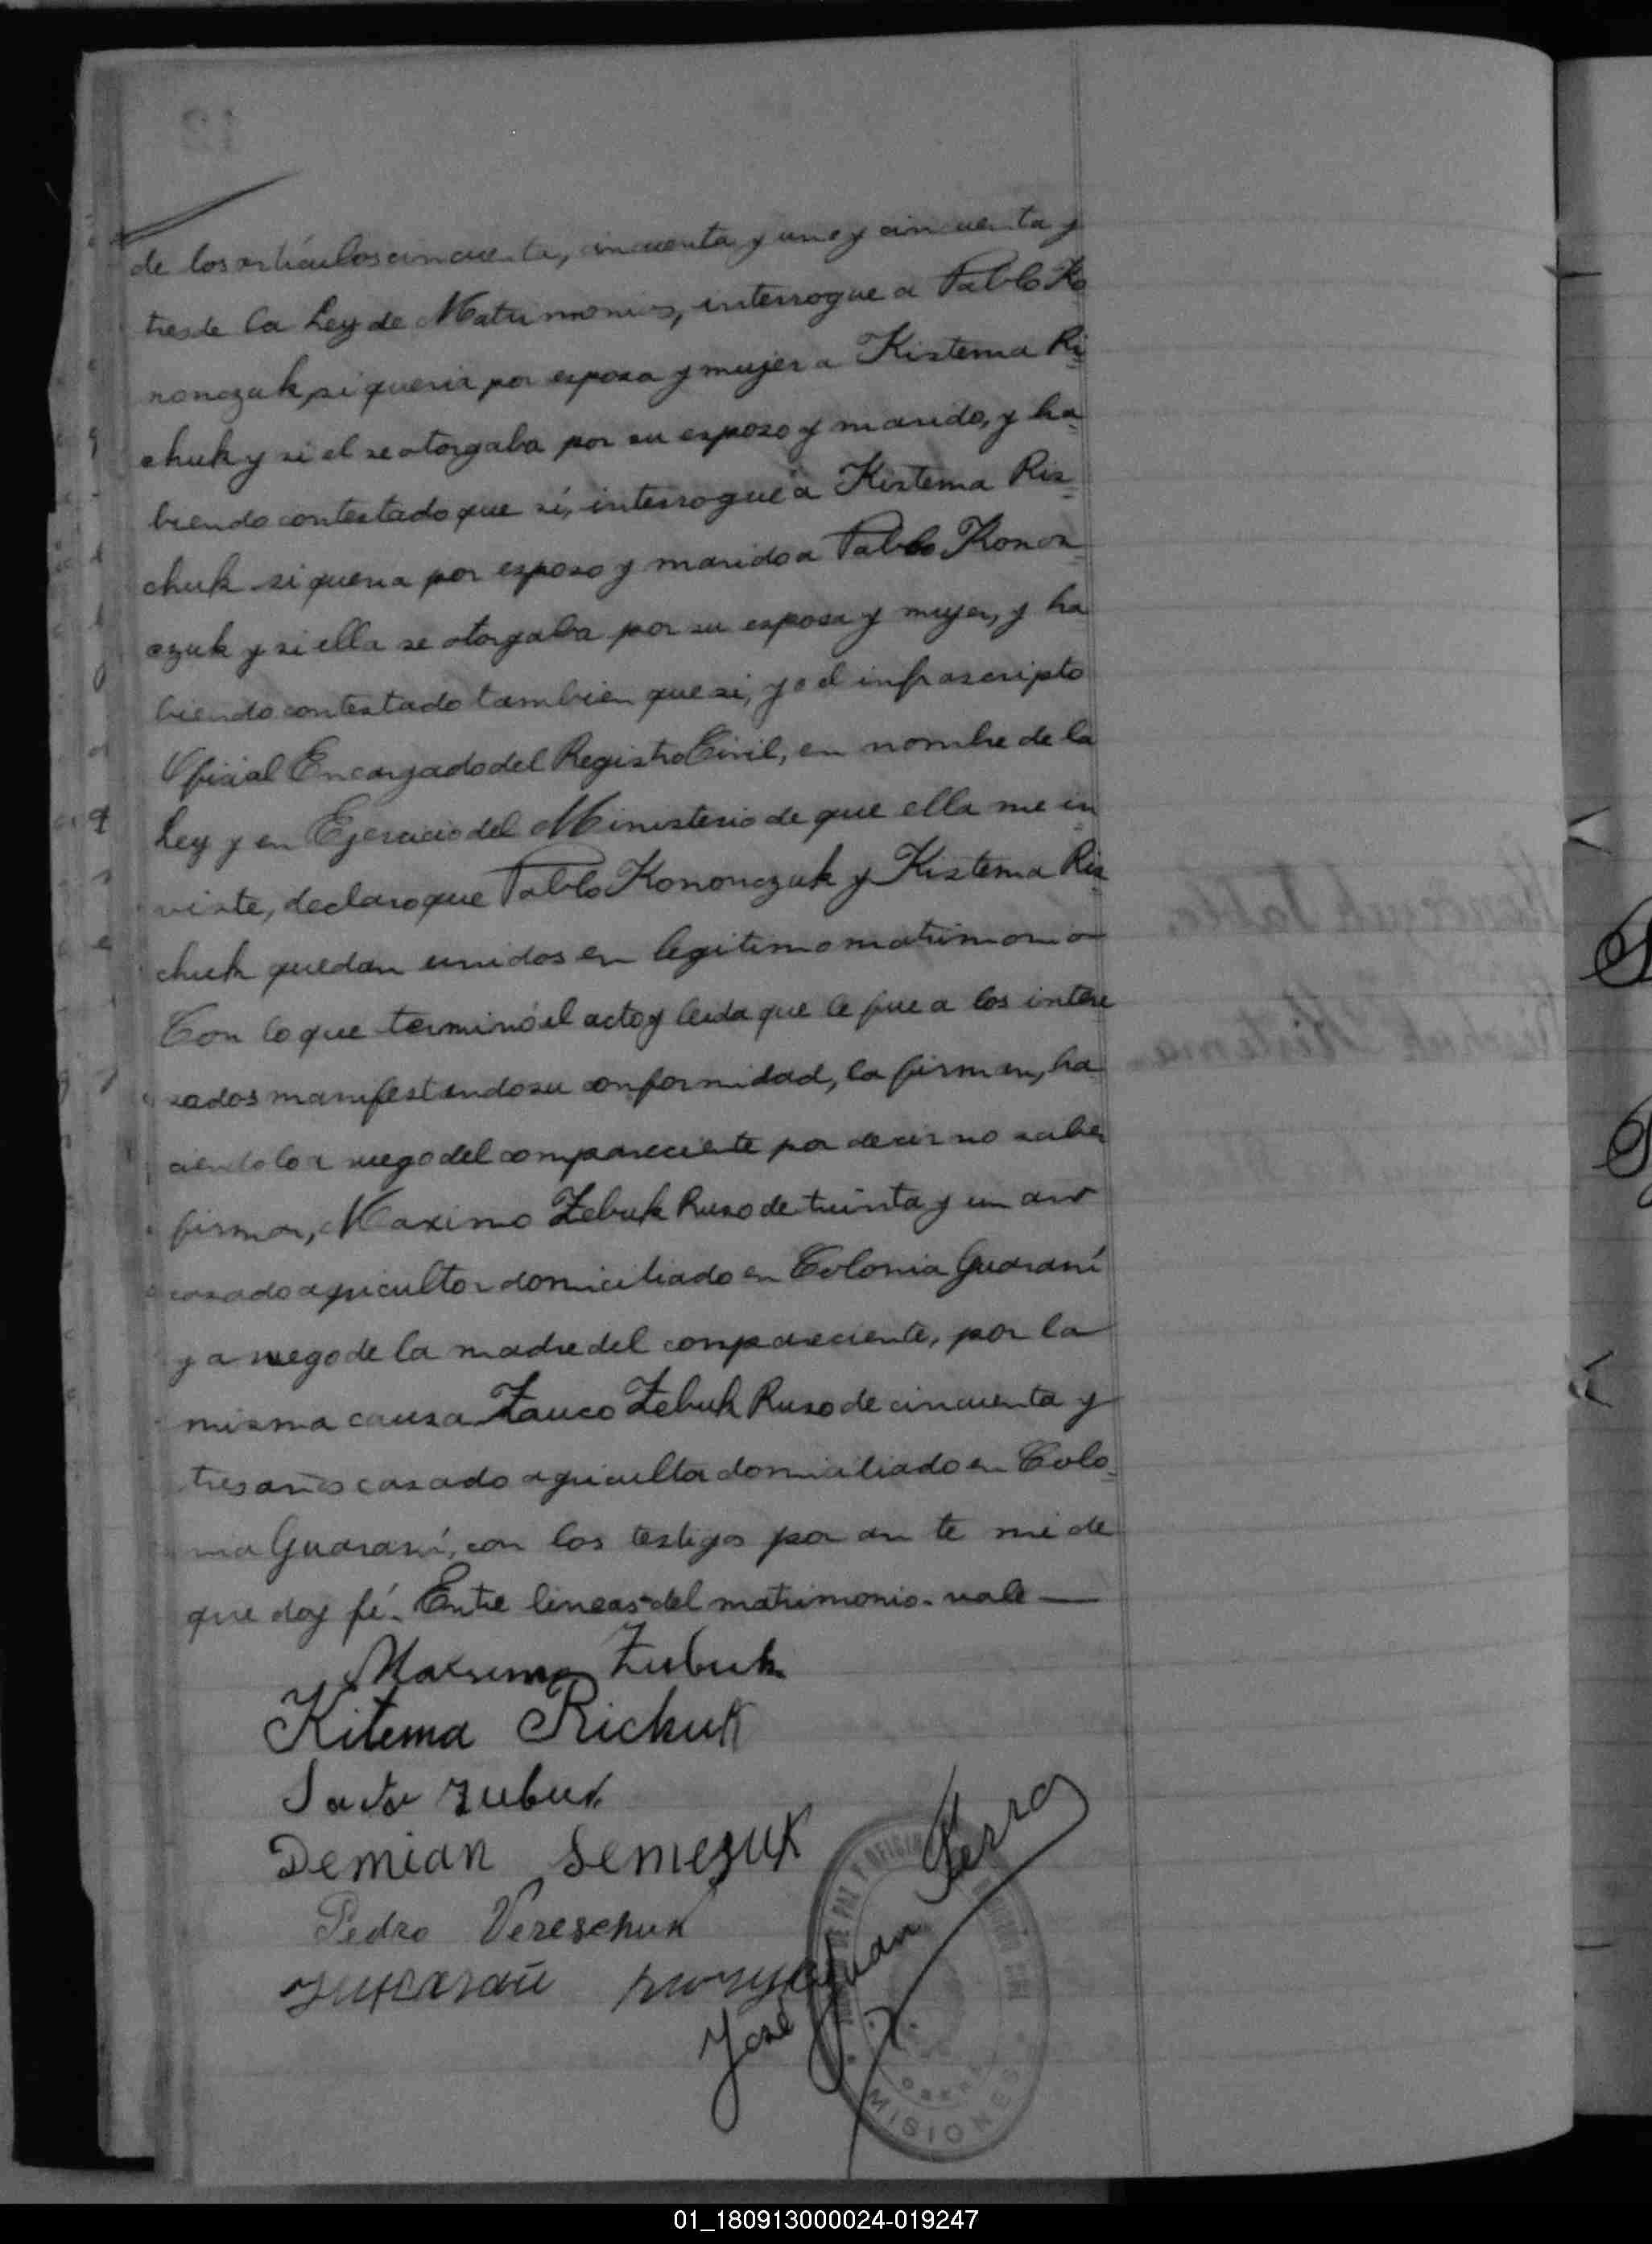 de los artículos cincuenta, cincuenta y uno y cincuenta y
tres de la Ley de Matrimonios, interrogue a Pablo Ko
nonczuk, si queria por esposa y mujer a Kistema Ri
chuk y si el se otorgaba por su esposo y marido, y ha
biendo contestado que sí, interrogué a Kistema Ris
chuk si queria por esposo y marido a Pablo Konon
czuk y si ella se otorgaba por su esposa y mujer, y ha
biendo contestado tambien que si, yo el infrascripto
Oficial Encargado del Registro Civil, en nombre de la
Ley y en Ejercicio del Ministerio de que ella me in
viste, declaro que Pablo Kononczuk y Kistema Ris
chuk quedan unidos en legitimo matrimonio
Con lo que terminó el acto y leida que le fue a los intere
sados manifestando su conformidad, la firman, ha
ciendolo a ruego del compareciente por decir no saber
firmar, Maximo Zebuk Ruso de treinta y un año
casado agricultor domiciliado en Colonia Guaraní
y a ruego de la madre del compareciente, por la
misma causa Zauco Zebuk Ruso de cincuenta y
tres años casado agricultor domiciliado en Colo
nia Guaraní, con los testigos por an te mi de
que doy fé. Entre lineas-del matrimonio-vale
Maxumo Zubuk
Kitema Rickuk
Zubuk
Demian Semezuk
Pedro Vereschuk
José Juan Ferra
MISIONES
01_180913000024-019247